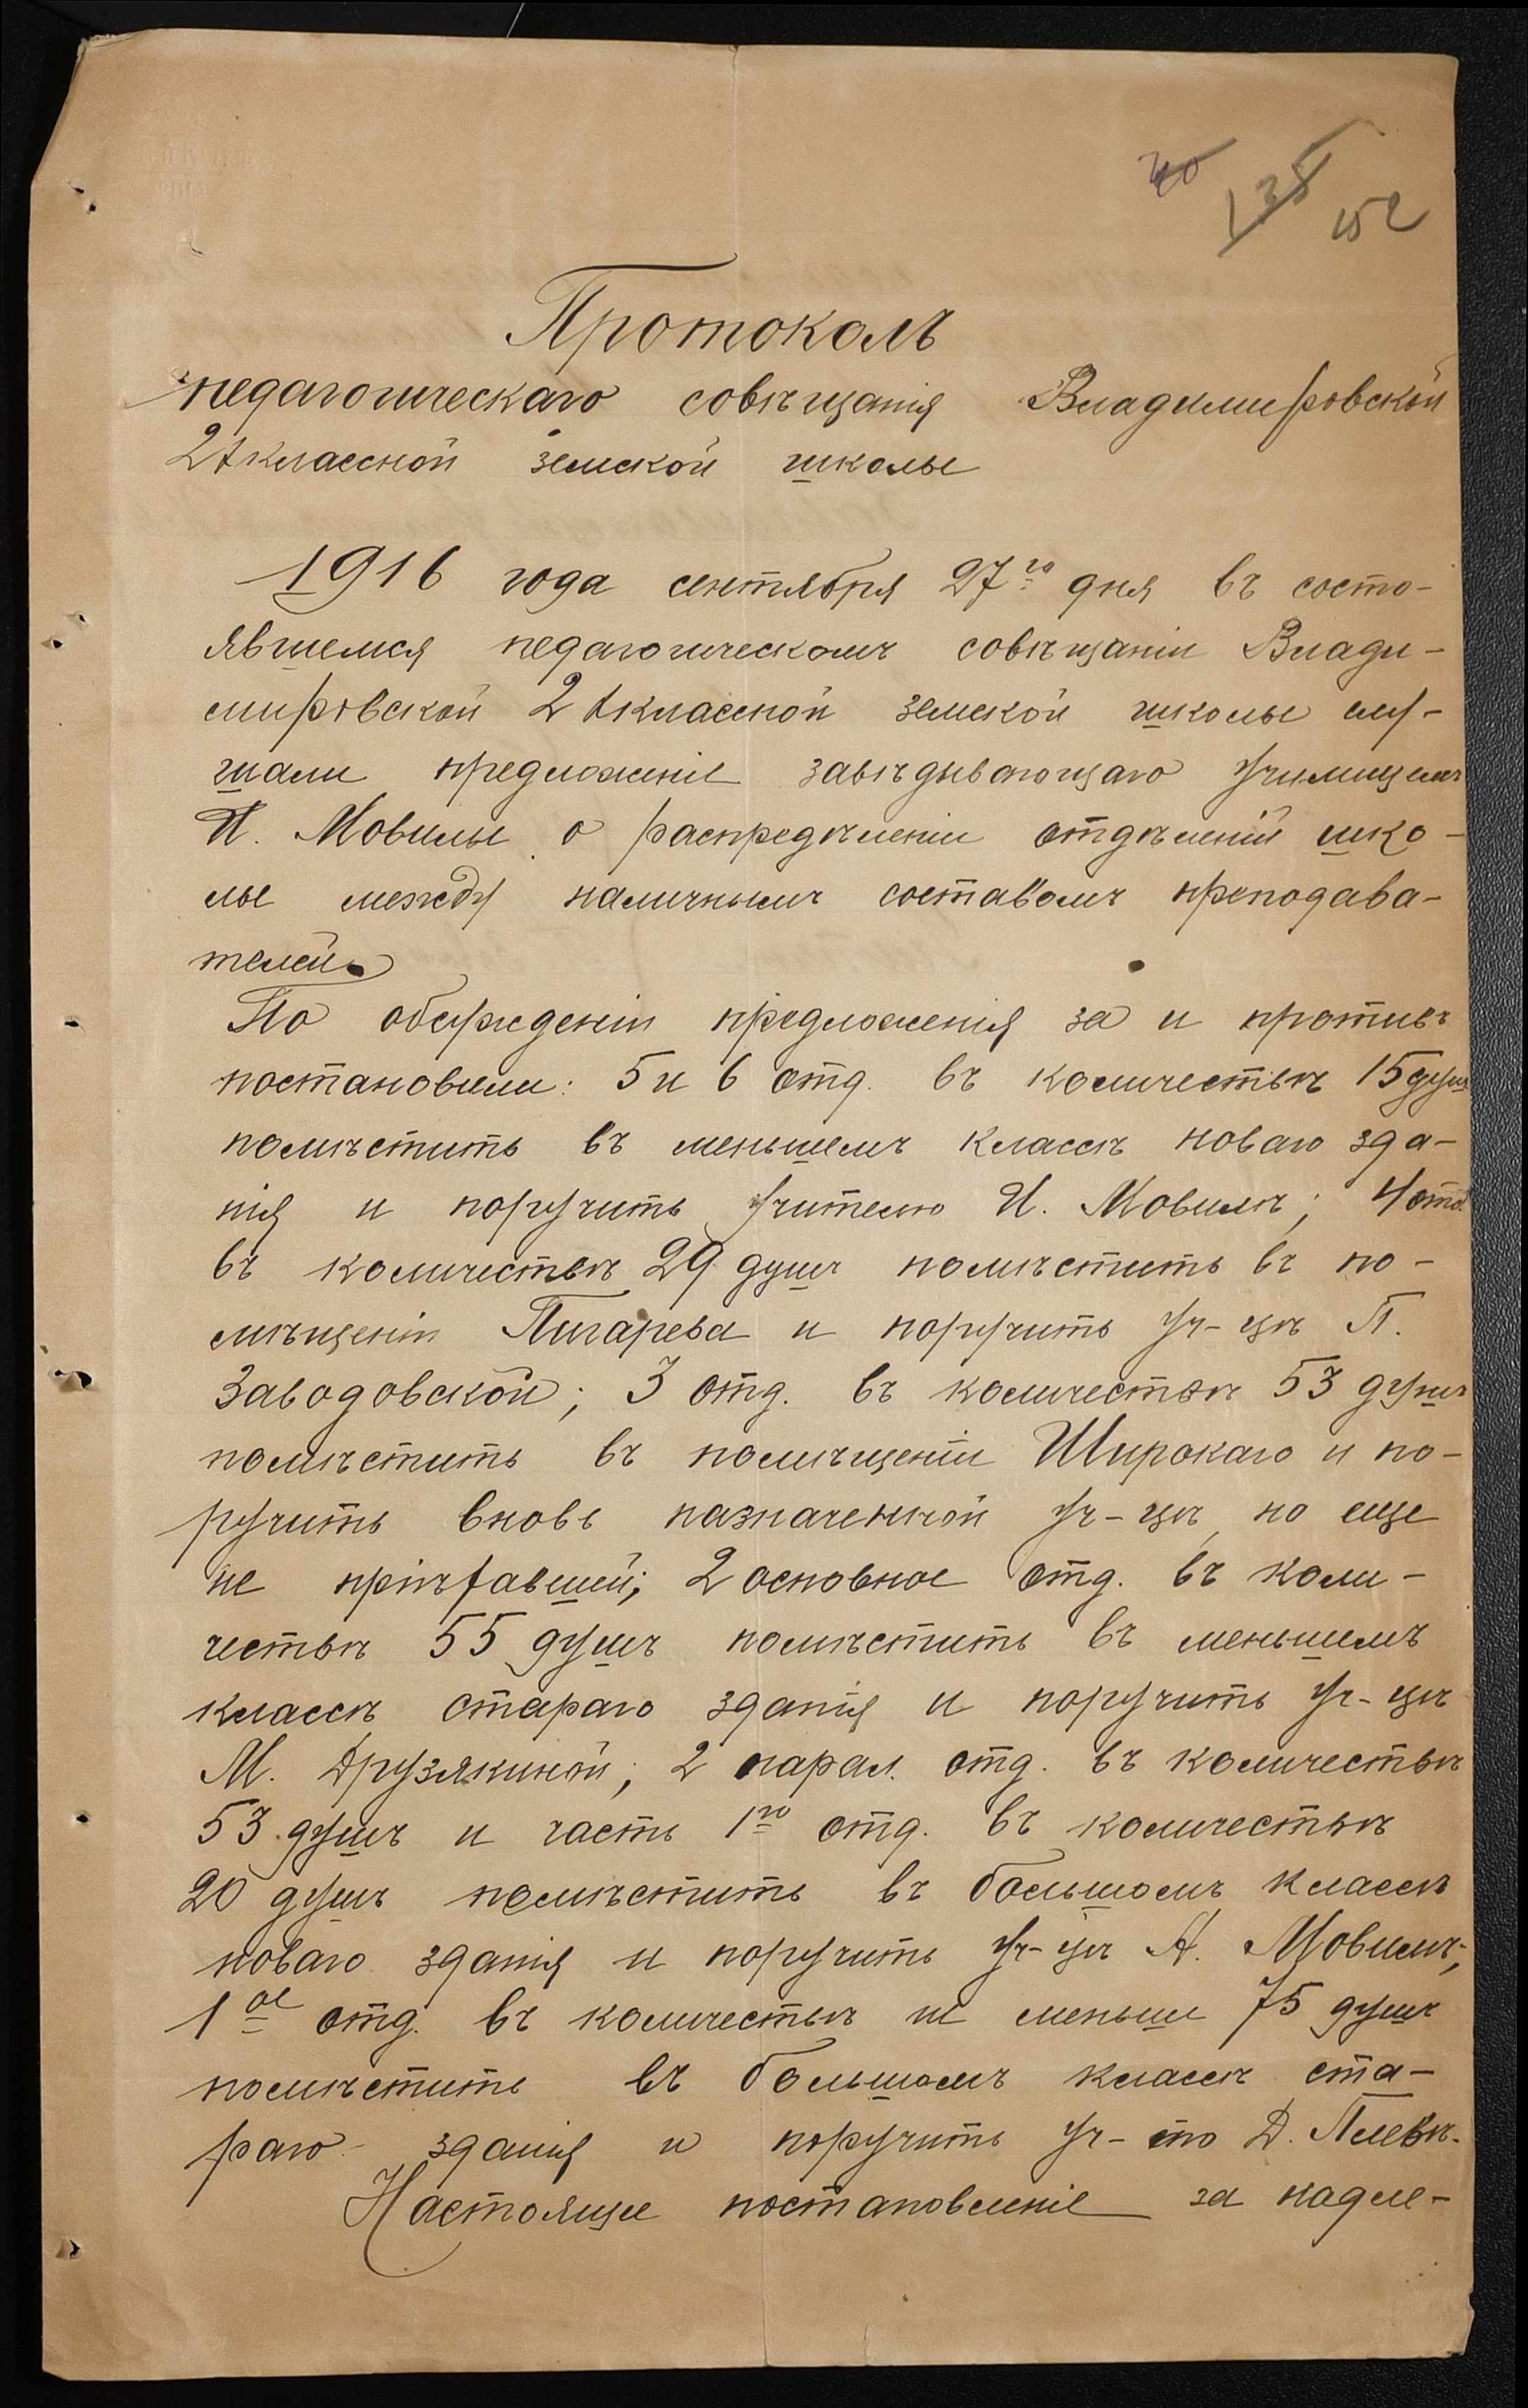 40 138 152
Протоколъ
педагогическаго совѣщанія Владимировской
2хклассной земской школы
1916 года сентября 27го дня въ состо-
явшемся педагогическомъ совѣщаніи Влади-
мировской 2хклассной земской школы слу-
шали предложеніе завѣдывающаго училищемъ
И. Мовилы о распредѣленіи отдѣленій шко-
лы между наличнымъ составомъ преподава-
телей.
По обсужденіи предложенія за и противъ
постановили: 5 и 6 отд. въ количествѣ 15 душъ
помѣстить въ меньшемъ классѣ новаго зда-
нія и поручить учителю И. Мовилѣ; 4 отд.
въ количествѣ 29 душъ помѣстить въ по-
мѣщеніи Пигарева и поручить уч-цѣ П.
Заводовской; 3 отд. въ количествѣ 53 душъ
помѣстить въ помѣщеніи Широкаго и по-
ручить вновь назначенной уч-цѣ, но еще
не пріѣхавшей; 2 основное отд. въ коли-
чествѣ 55 душъ помѣстить въ меньшемъ
классѣ стараго зданія и поручить уч-цѣ
М. Друзякиной; 2 парал. отд. въ количествѣ
53 душъ и часть 1го отд. въ количествѣ
20 душъ помѣстить въ большомъ классѣ
новаго зданія и поручить уч-цѣ А. Мовилѣ;
1ое отд. въ количествѣ не меньше 75 душъ
помѣстить въ большомъ классѣ ста-
раго зданія и поручить уч-лю Д. Плевѣ.
Настоящее постановленіе за надле-